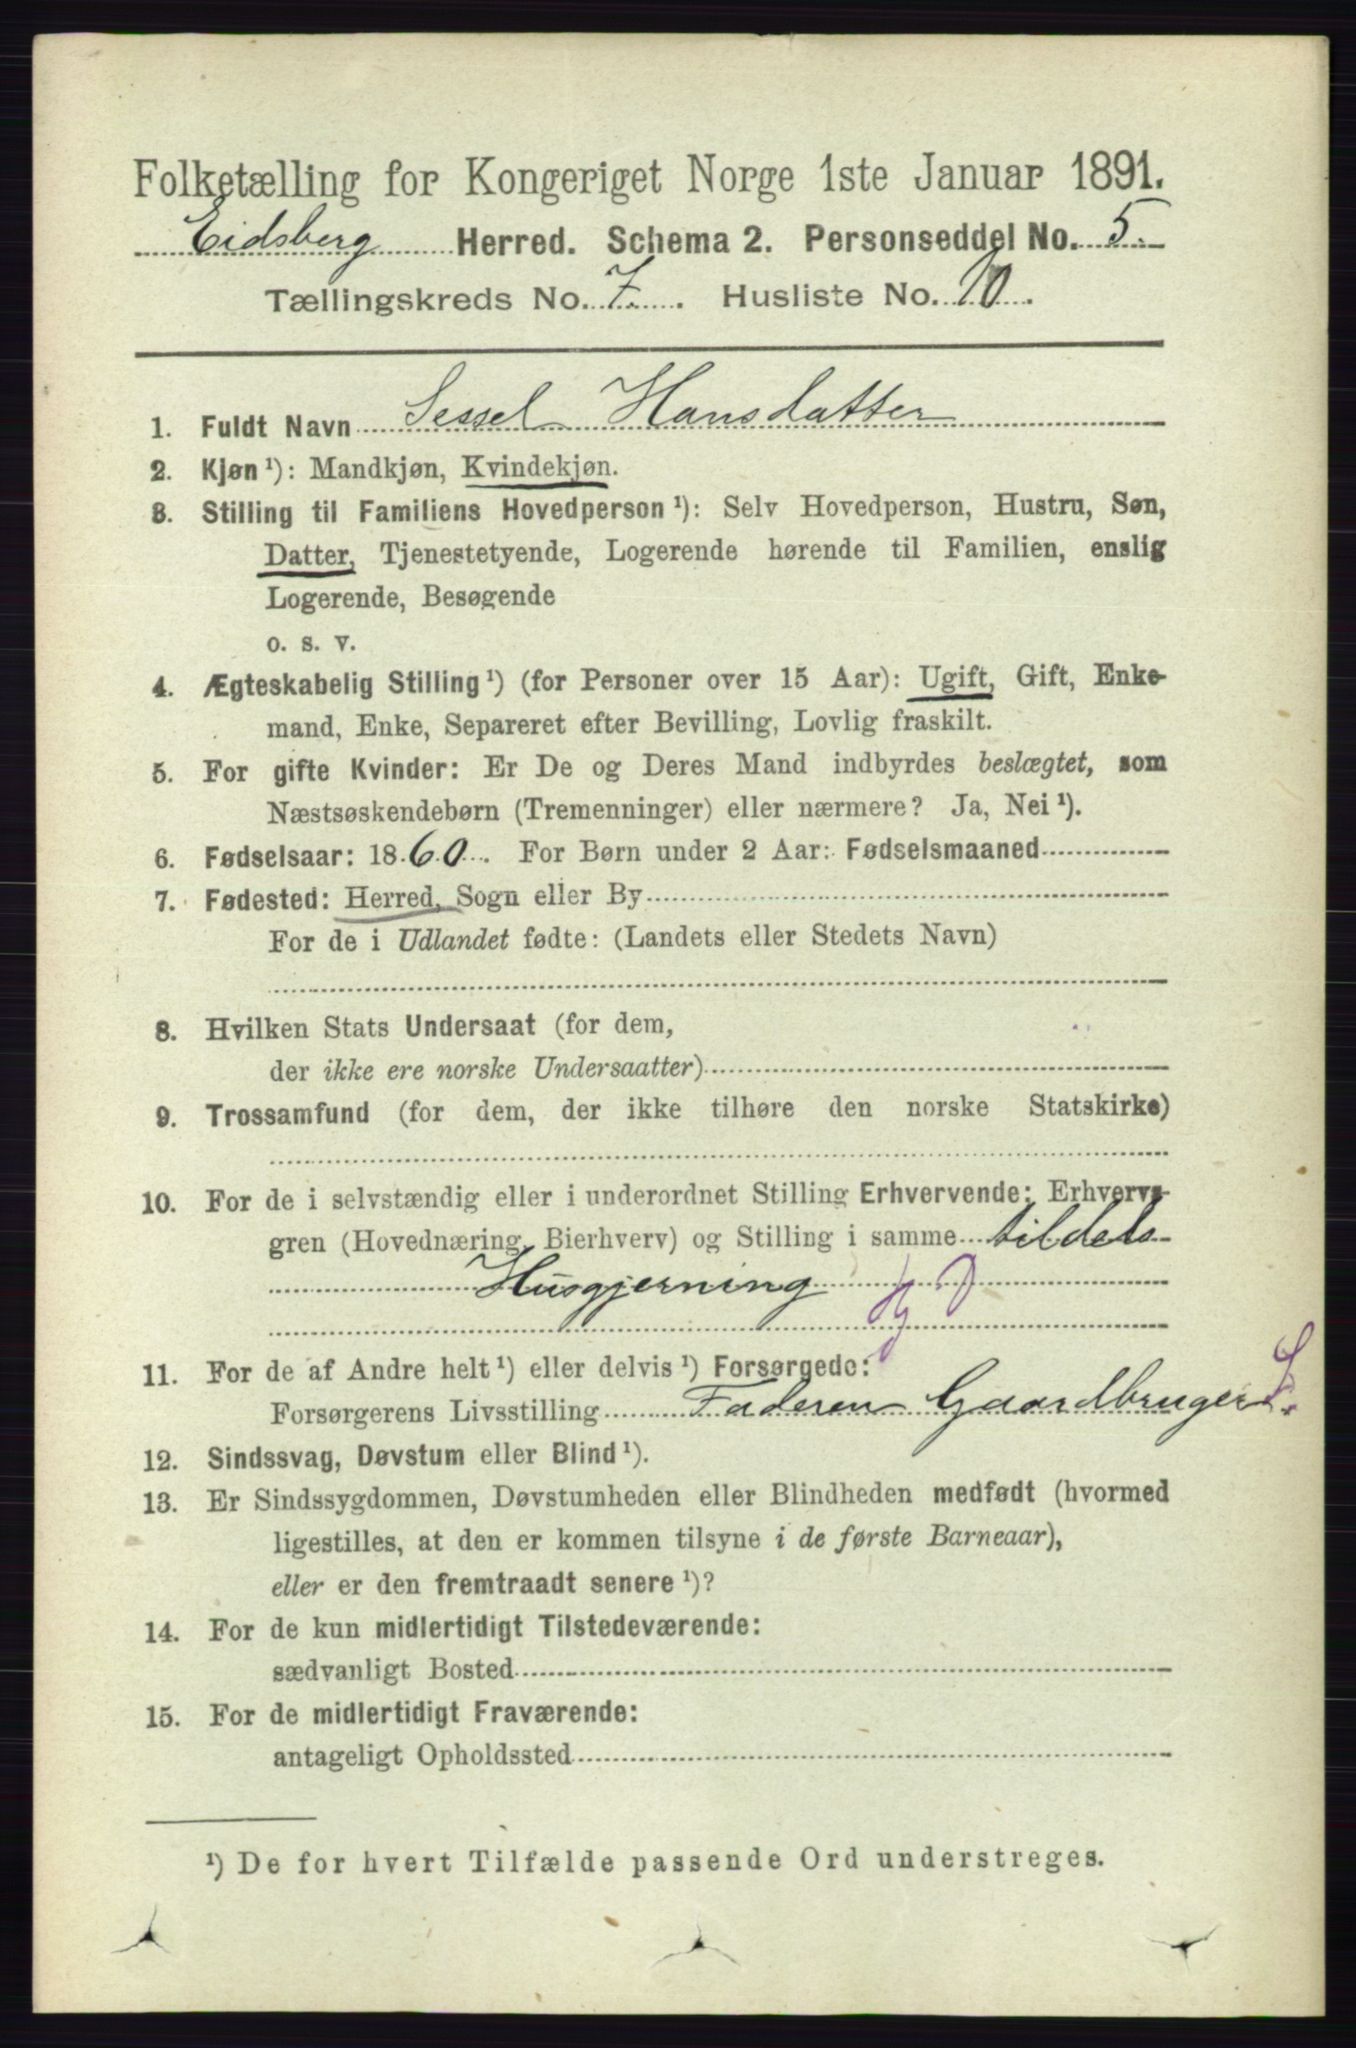 Folketælling for Kongeriget Norge 1ste Januar 1891.
Eidsberg Herred. Schema 2. Personseddel No. 5.
Tællingskreds No. 7. Husliste No. 10.
1. Fuldt Navn Sessel Hansdatter
2. Kjøn ¹): Mandkjøn, Kvindekjøn.
3. Stilling til Familiens Hovedperson ¹): Selv Hovedperson, Hustru, Søn,
Datter, Tjenestetyende, Logerende hørende til Familien, enslig
Logerende, Besøgende
o. s. v.
4. Ægteskabelig Stilling ¹) (for Personer over 15 Aar): Ugift, Gift, Enke-
mand, Enke, Separeret efter Bevilling, Lovlig fraskilt.
5. For gifte Kvinder: Er De og Deres Mand indbyrdes beslægtet, som
Næstsøskendebørn (Tremenninger) eller nærmere? Ja, Nei ¹).
6. Fødselsaar: 1860. For Børn under 2 Aar: Fødselsmaaned
7. Fødested: Herred, Sogn eller By
For de i Udlandet fødte: (Landets eller Stedets Navn)
8. Hvilken Stats Undersaat (for dem,
der ikke ere norske Undersaatter)
9. Trossamfund (for dem, der ikke tilhøre den norske Statskirke)
10. For de i selvstændig eller i underordnet Stilling Erhvervende: Erhvervs-
gren (Hovednæring, Bierhverv) og Stilling i samme tildels
Husgjerning
11. For de af Andre helt ¹) eller delvis ¹) Forsørgede:
Forsørgerens Livsstilling Faderen Gaardbruger
12. Sindssvag, Døvstum eller Blind ¹).
13. Er Sindssygdommen, Døvstumheden eller Blindheden medfødt (hvormed
ligestilles, at den er kommen tilsyne i de første Barneaar),
eller er den fremtraadt senere ¹)?
14. For de kun midlertidigt Tilstedeværende:
sædvanligt Bosted
15. For de midlertidigt Fraværende:
antageligt Opholdssted
¹) De for hvert Tilfælde passende Ord understreges.